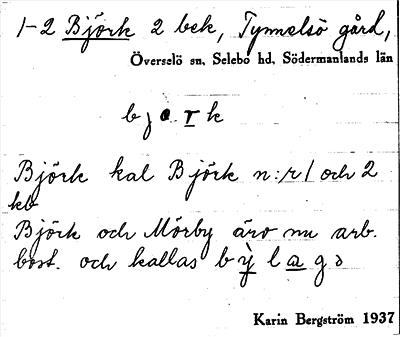 1-2 Björk 2 bek, Tynnelsö gård,
Överselö sn, Selebo hd, Södermanlands län
b j ɵ r k
Björk kal Björk n:r 1 och 2
kb
Björk och Mörby äro nu arb.
bost. och kallas b y l a g ə
Karin Bergström 1937